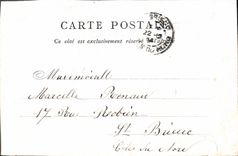 CARTE POSTALE
Ce côté est exclusivement réservé
Mademoiselle
Marcelle Renan
17 Rue
St Brieuc
Côtes du Nord